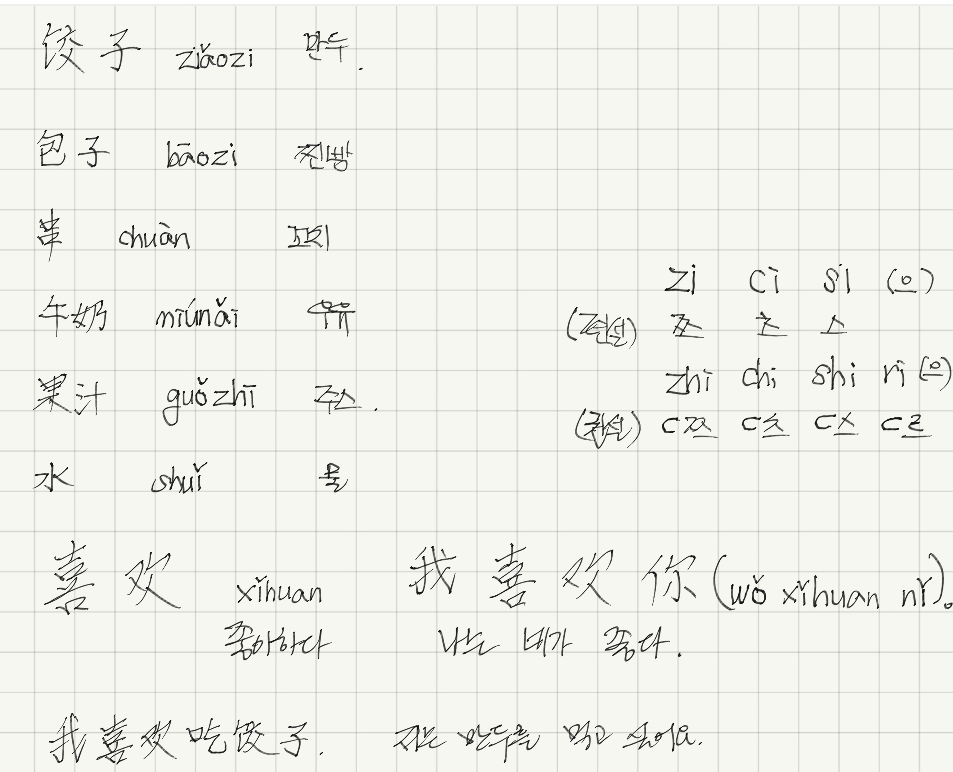 饺子 ziǎozi 만두.
包子 bāozi 찐빵
串 chuàn 꼬치
牛奶 niúnǎi 우유
果汁 guǒzhī 주스.
水 shuǐ 물
zi ci si (으)
쯔 츠 스
zhi chi shi ri (으)
(권설) ㄷ쯔 ㄷ츠 ㄷ스 ㄷ르
喜欢 xǐhuan 我喜欢你(wǒ xǐhuan nǐ)。
좋아하다 나는 네가 좋다.
我喜欢吃饺子. 저는 만두를 먹고 싶어요.